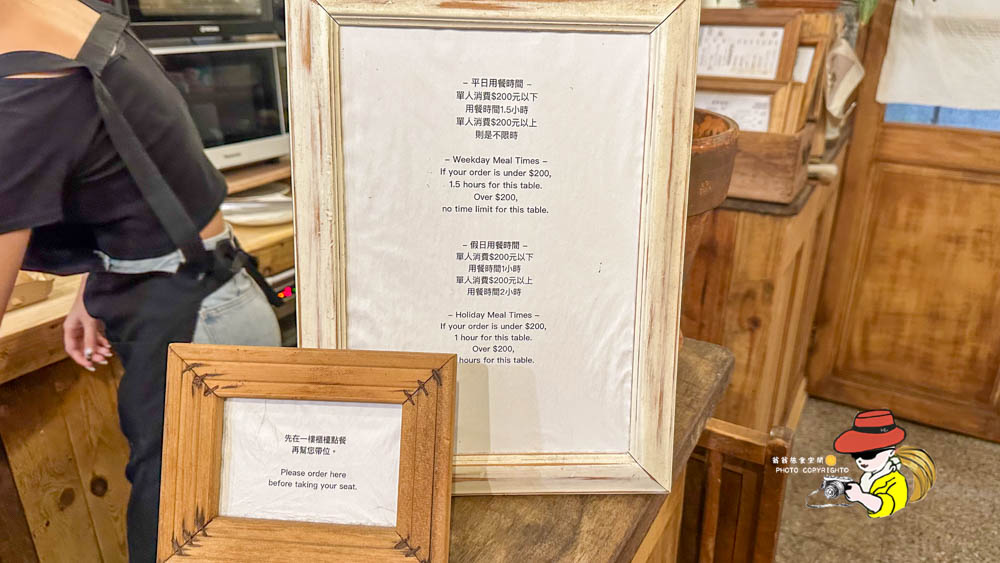 – 平日用餐時間 –
單人消費$200元以下
用餐時間1.5小時
單人消費$200元以上
則是不限時
– Weekday Meal Times –
If your order is under $200,
1.5 hours for this table.
Over $200,
no time limit for this table.
– 假日用餐時間 –
單人消費$200元以下
用餐時間1小時
單人消費$200元以上
用餐時間2小時
– Holiday Meal Times –
If your order is under $200,
1 hour for this table.
Over $200,
hours for this table.
先在一樓櫃檯點餐
再幫您帶位。
Please order here
before taking your seat.
PHOTO COPYRIGHT